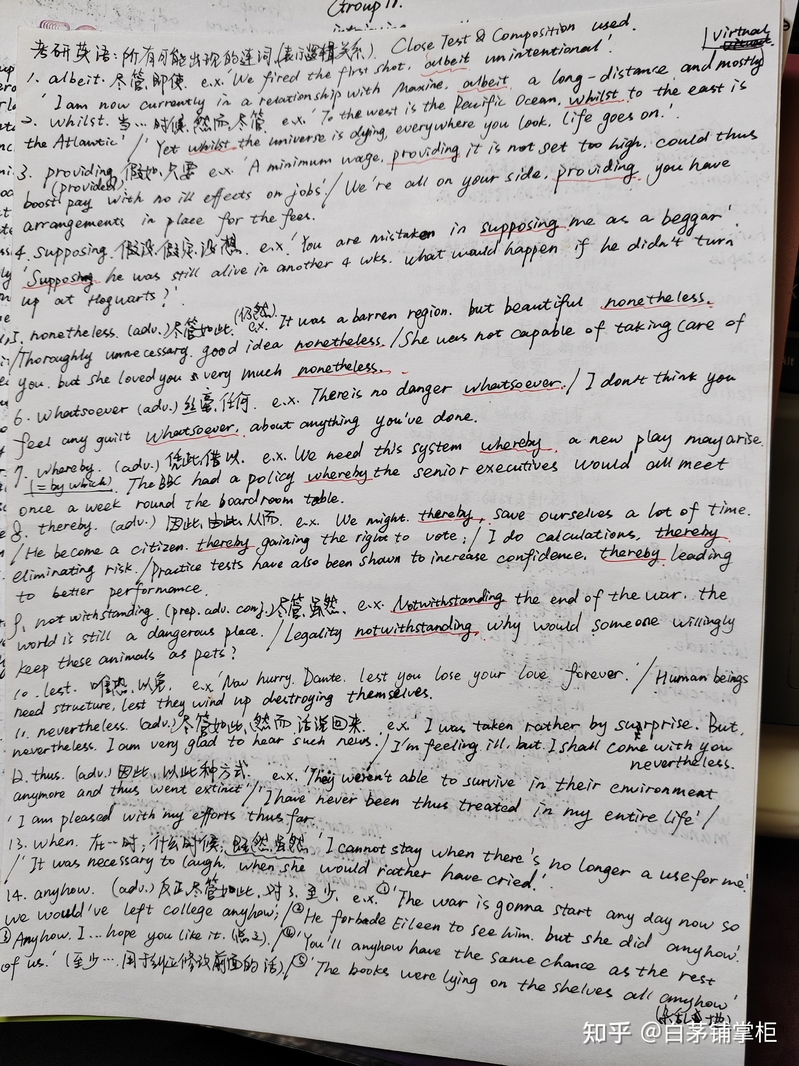 Group 11.
考研英语:所有可能出现的连词(表示逻辑关系). Close Test & Composition used.
virtual
1. albeit. 尽管,即使. e.x. 'We fired the first shot, albeit unintentional'.
'I am now currently in a relationship with Maxine, albeit a long-distance and mostly
2. whilst. 当…时候,然而,尽管. e.x. 'To the west is the Pacific Ocean, whilst to the east is
the Atlantic' / 'Yet whilst the universe is dying, everywhere you look, life goes on.'
3. providing 假如,只要 e.x. 'A minimum wage, providing it is not set too high, could thus
(provided)
boost pay with no ill effects on jobs' / We're all on your side, providing you have
arrangements in place for the fees.
4. supposing. 假设,假定,设想. e.x. 'You are mistaken in supposing me as a beggar'
'Supposing he was still alive in another 4 wks. what would happen if he didn't turn
up at Hogwarts?'
5. nonetheless. (adv.) 尽管如此. (仍然). e.x. It was a barren region. but beautiful nonetheless.
/Thoroughly unnecessary. good idea nonetheless. / She was not capable of taking care of
you. but she loved you very much nonetheless.
6. whatsoever (adv.) 丝毫,任何. e.x. There is no danger whatsoever. / I don't think you
feel any guilt whatsoever. about anything you've done.
7. whereby. (adv.) 凭此,借以. e.x. We need this system whereby a new play may arise.
(=by which). The BBC had a policy whereby the senior executives would all meet
once a week round the boardroom table.
8. thereby. (adv.) 因此,由此,从而. e.x. We might. thereby, save ourselves a lot of time.
/He become a citizen. thereby gaining the right to vote; / I do calculations, thereby
eliminating risk. /Practice tests have also been shown to increase confidence, thereby leading
to better performance.
9. notwithstanding. (prep. adv. conj.) 尽管,虽然. e.x. Notwithstanding the end of the war, the
world is still a dangerous place. / Legality notwithstanding, why would someone willingly
keep these animals as pets?
10. lest. 唯恐,以免. e.x. 'Now hurry. Dante. lest you lose your love forever.' / Human beings
need structure, lest they wind up destroying themselves.
11. nevertheless. (adv.) 尽管如此,然而,话说回来. e.x. 'I was taken rather by surprise. But,
nevertheless. I am very glad to hear such news. / I'm feeling ill, but I shall come with you
nevertheless.
12. thus. (adv.) 因此,以此种方式. e.x. 'They weren't able to survive in their environment
anymore and thus went extinct' / 'I have never been thus treated in my entire life' /
'I am pleased with my efforts thus far.
13. when. 在…时;什么时候;既然,虽然. 'I cannot stay when there's no longer a use for me.'
/ 'It was necessary to laugh, when she would rather have cried.'
14. anyhow. (adv.) 反正,尽管如此,对了,至少. e.x. ①'The war is gonna start any day now so
we would've left college anyhow; / ②He forbade Eileen to see him. but she did anyhow.'
③Anyhow. I... hope you like it. / ④'You'll anyhow have the same chance as the rest
of us.' (至少…用于纠正修改前面的话). / ⑤'The books were lying on the shelves all anyhow'
知乎 @白茅铺掌柜